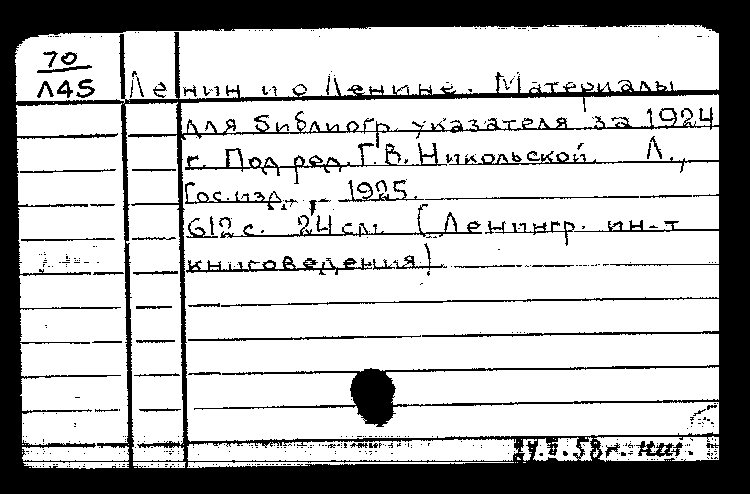 70
Л45 Ленин и о Ленине. Материалы
для библиогр. указателя за 1924
г. Под ред. Г.В. Никольской. Л.,
Гос.изд., 1925.
612 с. 24 см. (Ленингр. ин-т
книговедения)
58 г.